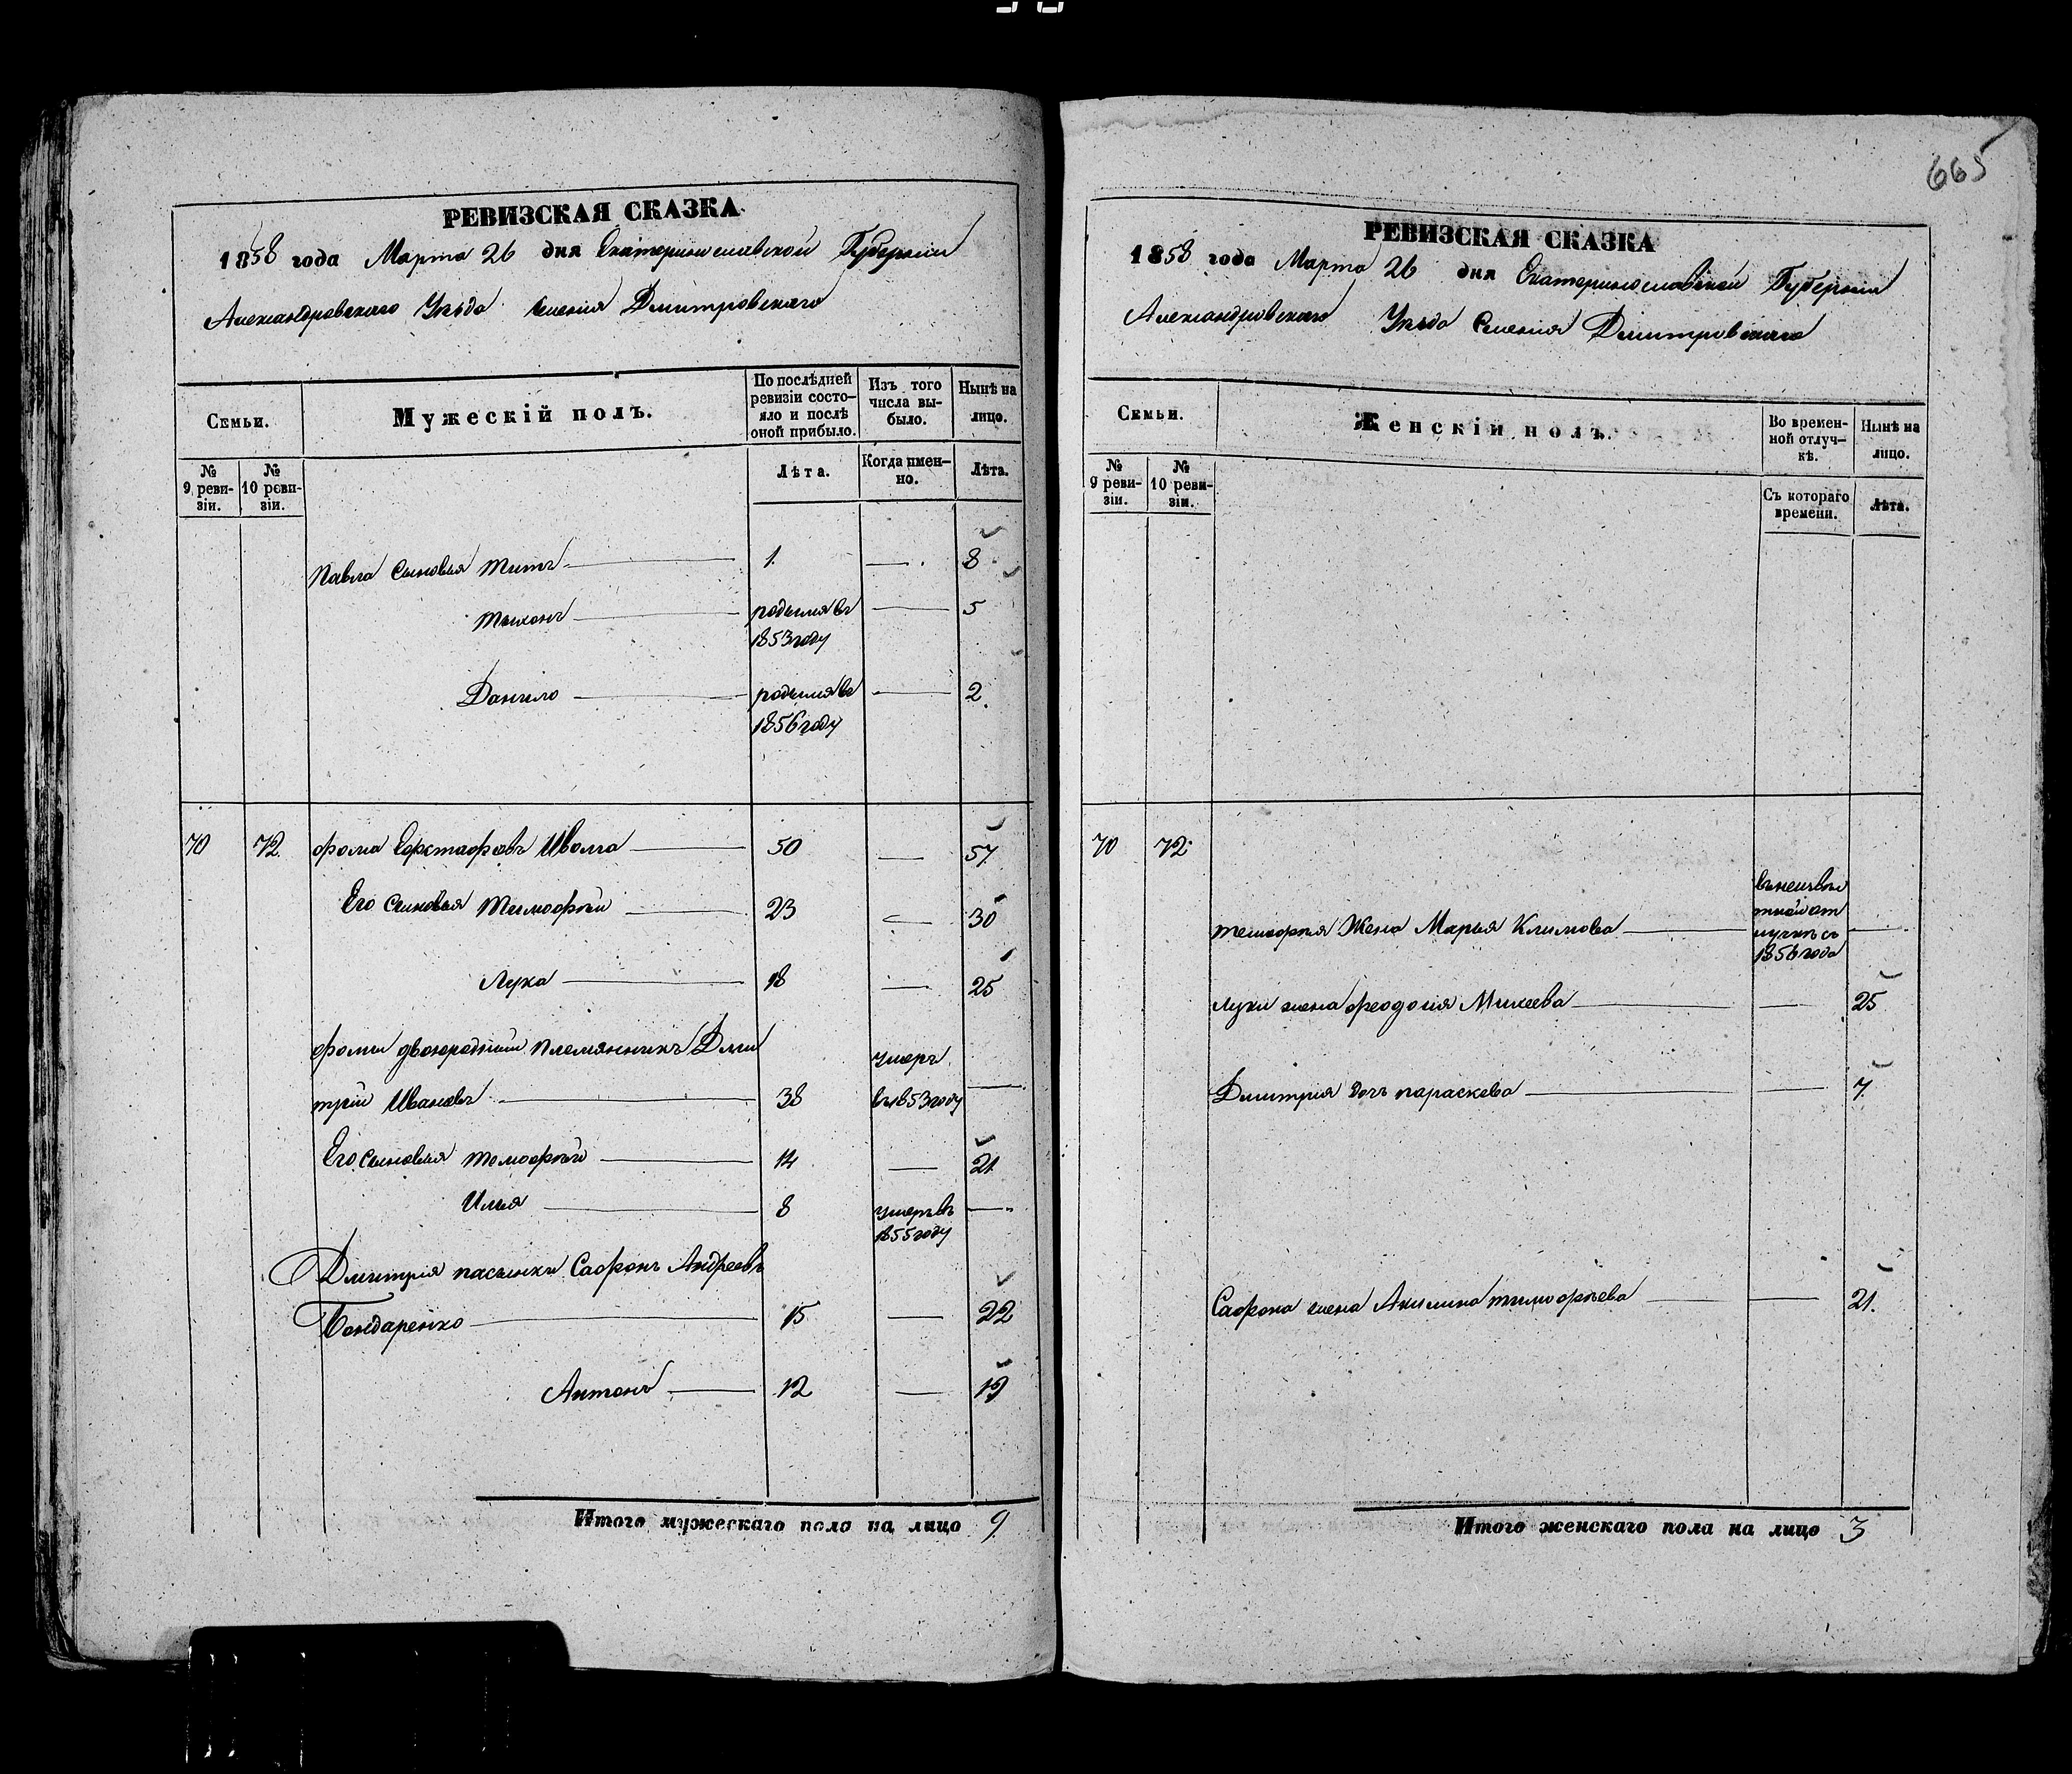 665
РЕВИЗСКАЯ СКАЗКА
1858 года Марта 26 дня Екатеринославской Губернии
Александровского Уѣзда Имения Дмитровскаго
Семьи.
Мужескій полъ.
По послѣдней ревизіи состо-
яло и послѣ оной прибыло.
Изъ того числа вы-
было.
Нынѣ на лицо.
№ 9 реви-
зіи.
№ 10 реви-
зіи.
Лѣта.
Когда имен-
но.
Лѣта.
Павла сыновья Титъ 1. 8
Тихонъ родился въ 5
1853 году
Данило родился въ 2
1856 году
70 72 Фома Евстафовъ Иволга 50 57
Его сыновья Тимофѣй 23 30
Лука 18 25
Фомы двоюродный племянникъ Дми
умеръ
трій Ивановъ 38 въ 1853 году
Его сыновья Тимофѣй 14 21
Илья 8 умеръ въ
1855 году
Дмитрия пасынки Сафронъ Андреевъ
Бондаренко 15 22
Антонъ 12 19
Итого мужескаго пола на лицо 9
РЕВИЗСКАЯ СКАЗКА
1858 года Марта 26 дня Екатеринославской Губернии
Александровского Уѣзда Имения Дмитровскаго
Семьи.
Женскій полъ.
Во времен-
ной отлуч-
кѣ.
Нынѣ на лицо.
№ 9 реви-
зіи.
№ 10 реви-
зіи.
Съ котораго времени.
Лѣта.
70 72
въ неизвѣс
тной от
Тимофѣя Жена Марья Климова лучкѣ съ
1856 года
Луки жена Феодосия Михеева 25
Дмитрия дочь Параскева 7
Сафрона жена Акилина Тимофѣева 21
Итого женскаго пола на лицо 3